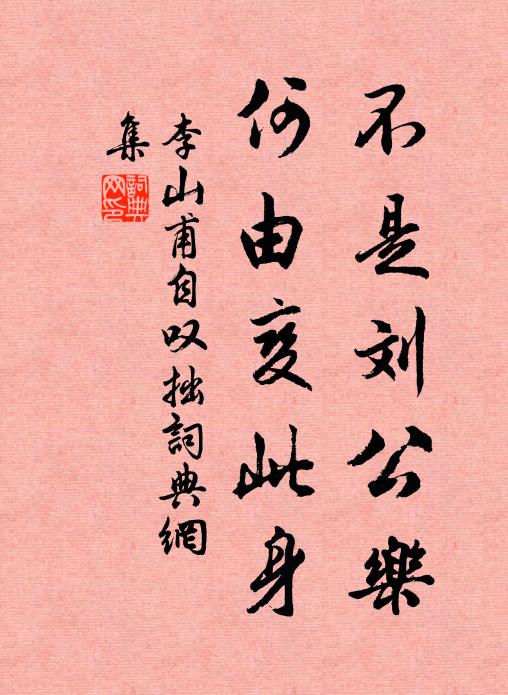 不是刘公樂
何由变此身
李山甫自叹拙詞典網
集
詞典
网印